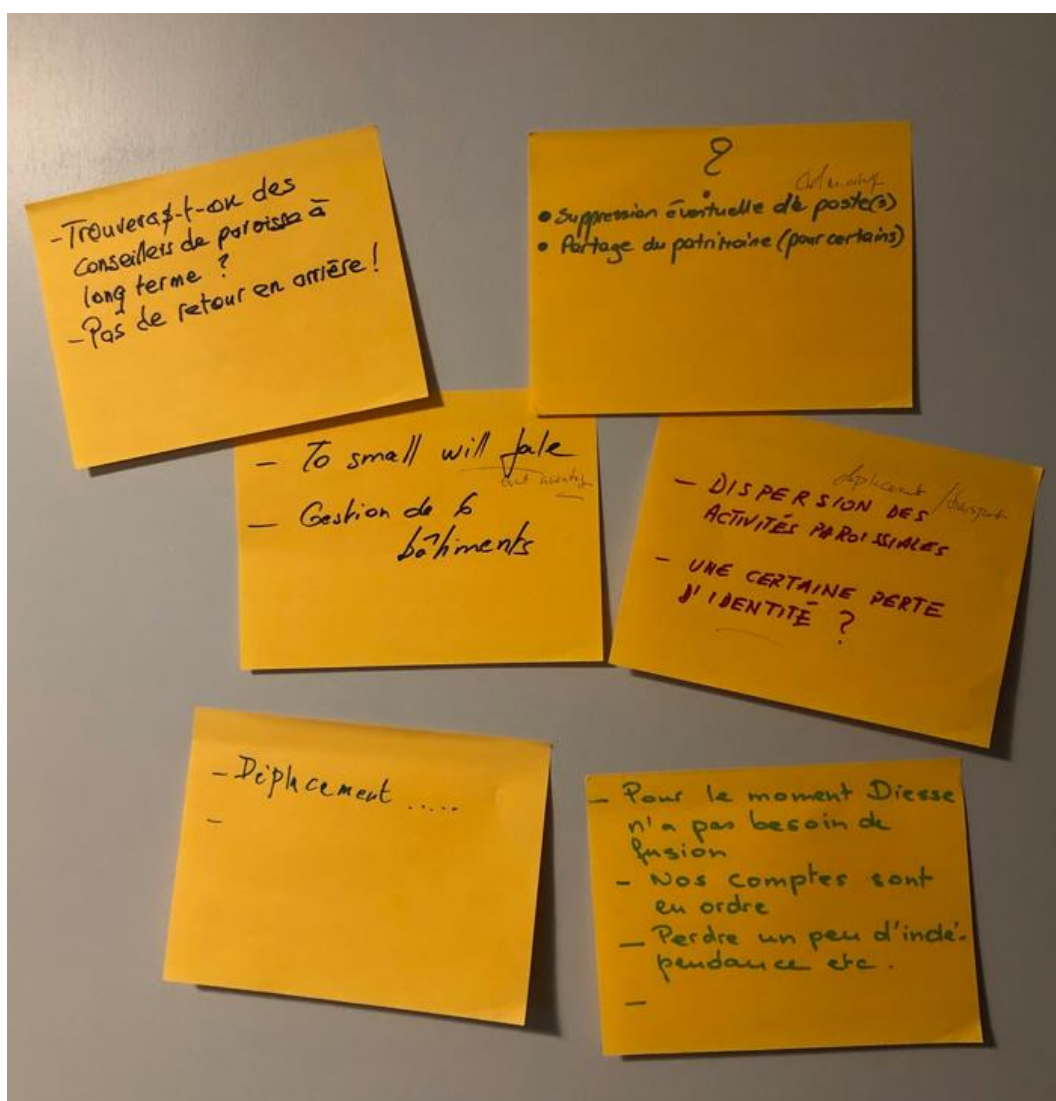 - Trouvera-t-on des
conseillers de paroisse à
long terme ?
- Pas de retour en arrière !
?
• Suppression éventuelle de poste(s)
• Partage du patrimoine (pour certains)
- To small will fale
- Gestion de 6
bâtiments
déplacement / transport
- DISPERSION DES
ACTIVITÉS PAROISSIALES
- UNE CERTAINE PERTE
D'IDENTITÉ ?
- Déplacement .....
-
- Pour le moment Diesse
n'a pas besoin de
fusion
- Nos comptes sont
en ordre
- Perdre un peu d'indé-
pendance etc.
-